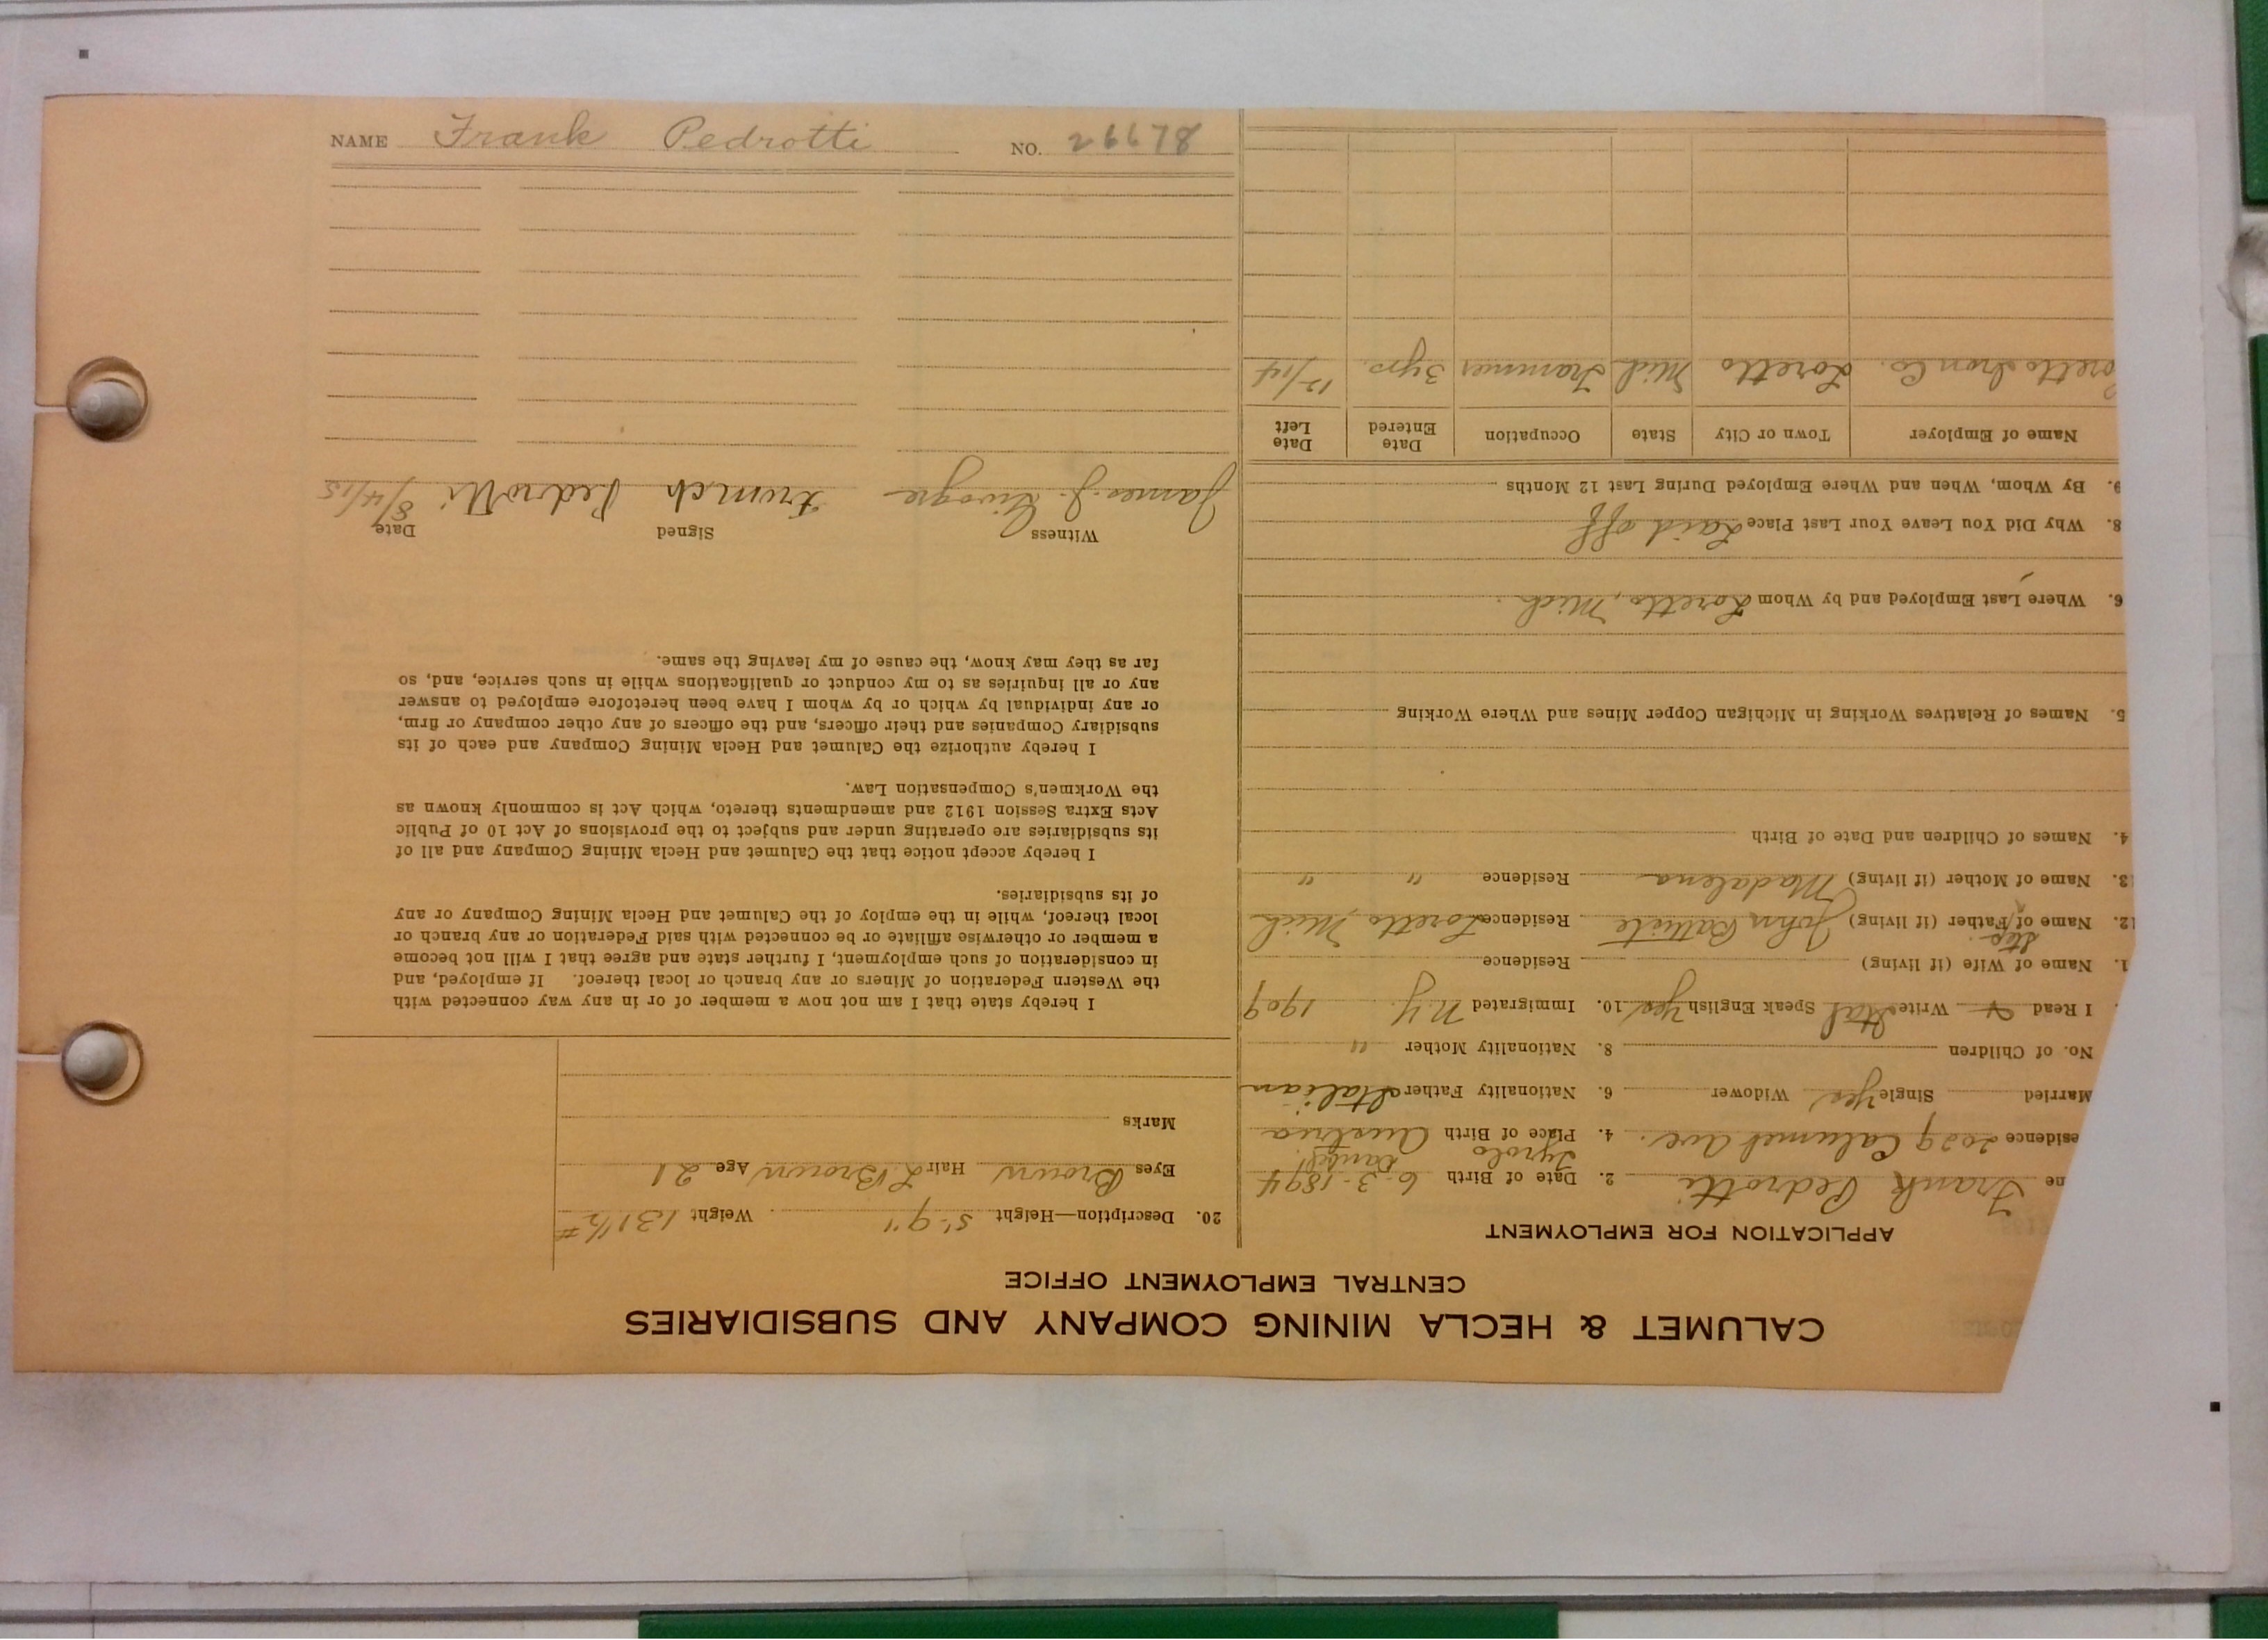 NAME Frank Pedrotti NO. 26678
CALUMET & HECLA MINING COMPANY AND SUBSIDIARIES
CENTRAL EMPLOYMENT OFFICE
APPLICATION FOR EMPLOYMENT
me Frank Pedrotti 2. Date of Birth 6-3-1894
Tyrolo
esidence 2029 Calumet Ave. 4. Place of Birth Austria
Married Single Yes Widower 6. Nationality Father Italian
No. of Children 8. Nationality Mother "
I Read & Write Ital Speak English Yes 10. Immigrated N.Y. 1909
1. Name of Wife (if living) Residence
Step
12. Name of Father (if living) John Battiste Residence Loretto, Mich
13. Name of Mother (if living) Madalena Residence " "
4. Names of Children and Date of Birth
5. Names of Relatives Working in Michigan Copper Mines and Where Working
6. Where Last Employed and by Whom Loretto, Mich.
8. Why Did You Leave Your Last Place Laid off
9. By Whom, When and Where Employed During Last 12 Months
Name of Employer Town or City State Occupation Date Entered Date Left
oretto Iron Co. Loretto Mich Trammer 3 yrs. 12/14
20. Description—Height 5'-9" Weight 131 1/2 #
Eyes Brown Hair L. Brown Age 21
Marks
I hereby state that I am not now a member of or in any way connected with
the Western Federation of Miners or any branch or local thereof. If employed, and
in consideration of such employment, I further state and agree that I will not become
a member or otherwise affiliate or be connected with said Federation or any branch or
local thereof, while in the employ of the Calumet and Hecla Mining Company or any
of its subsidiaries.
I hereby accept notice that the Calumet and Hecla Mining Company and all of
its subsidiaries are operating under and subject to the provisions of Act 10 of Public
Acts Extra Session 1912 and amendments thereto, which Act is commonly known as
the Workmen's Compensation Law.
I hereby authorize the Calumet and Hecla Mining Company and each of its
subsidiary Companies and their officers, and the officers of any other company or firm,
or any individual by which or by whom I have been heretofore employed to answer
any or all inquiries as to my conduct or qualifications while in such service, and, so
far as they may know, the cause of my leaving the same.
Witness Signed Date
James J. Pedrotti 8/4/15